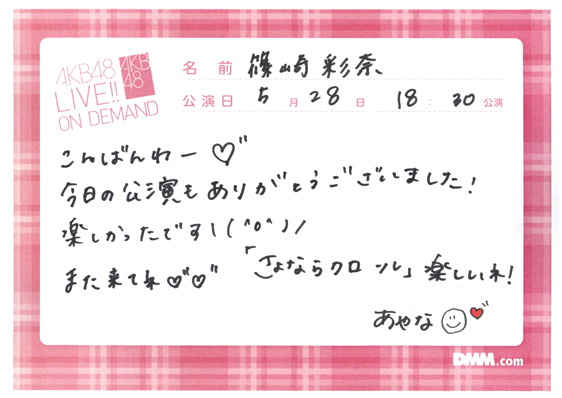 AKB48
LIVE!!
ON DEMAND
AKB
48
名前 篠崎彩奈
公演日 5月28日 18:30公演
こんばんわー♡"
今日の公演もありがとうございました!
楽しかったです\(^o^)/
また来てね♡"♡" 「さよならクロール」楽しいね!
あやな
DMM.com